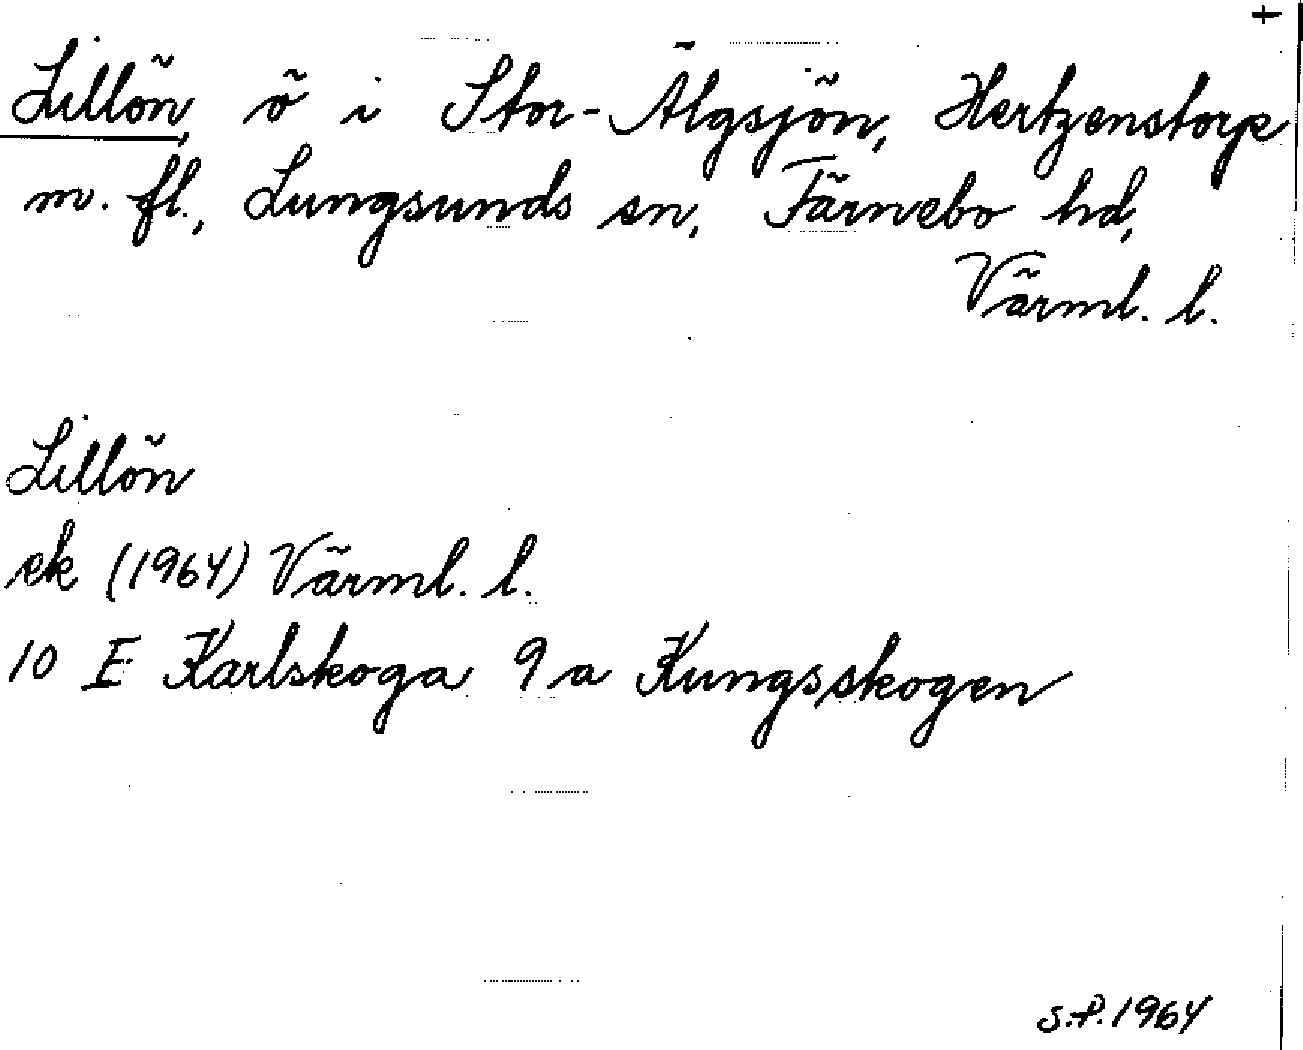 +
Lillön, ö i Stor-Älgsjön, Hertzenstorp
m. fl., Lungsunds sn, Färnebo hd,
Värml. l.
Lillön
ek (1964) Värml. l.
10 E Karlskoga 9 a Kungsskogen
S.P. 1964